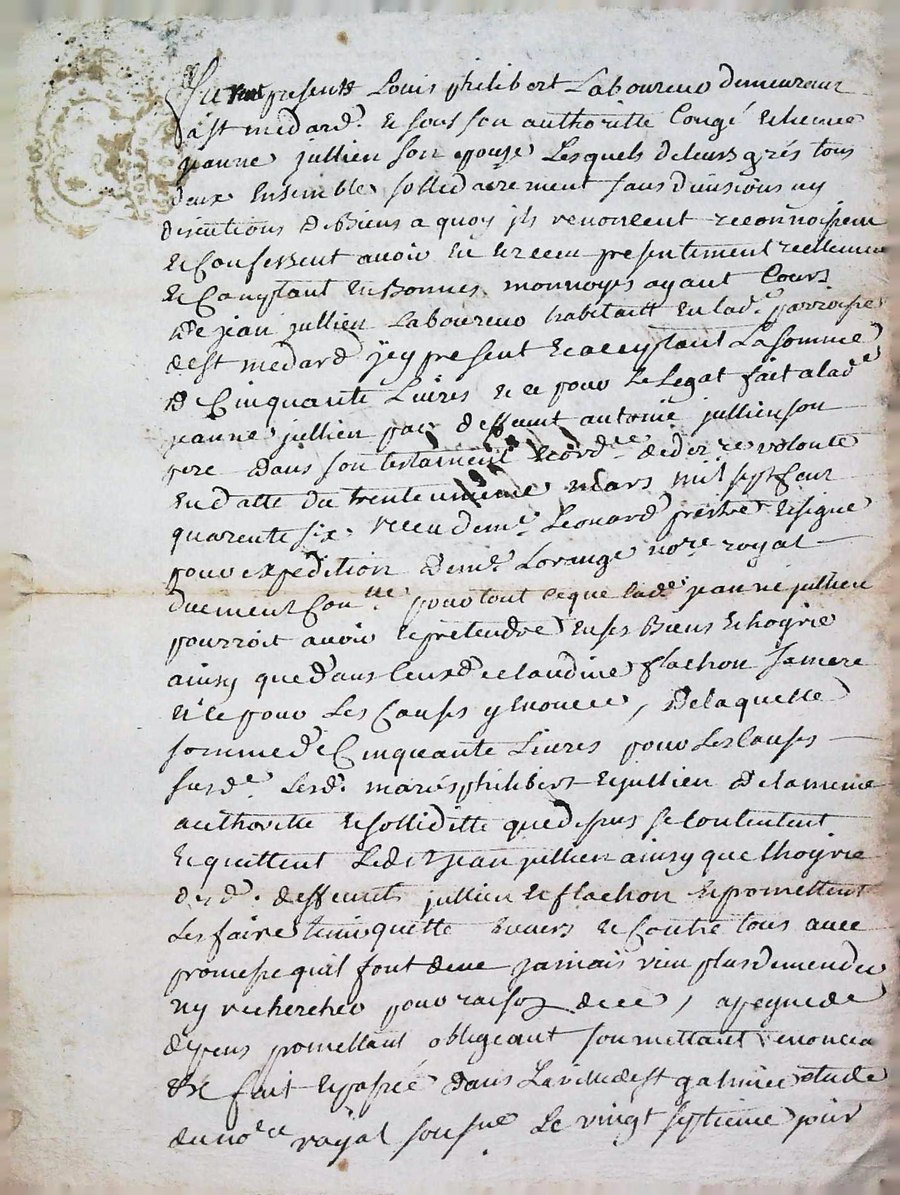 Furent presents Louis philibert Laboureur demeurant
a st medard. & sous son authoritte Congé & licence
jeanne jullien son epouse Lesquels de leurs grés tous
deux Ensemble sollidairement sans divisions ny
discutions de Biens a quoy ils renoncent reconnoissent
& Confessent avoir Eu & receu presentement reellement
& Comptant En Bonnes monnoyes ayant Cours
de jean jullien Laboureur habitant En lad. parroisse
de st medard jcy present & acceptant La somme
de Cinquante Livres & ce pour Le Legat fait a lad.
jeanne jullien par deffunt antoine jullien son
pere dans son testament & ord.re de der.re volonté
En datte du trente unieme mars mil sept Cent
quarente six. receu de m.e Leonard prestre & signé
pour expedition de m.e Lorange no.re royal
duement Con.llé pour tout ce que lad. jeanne jullien
pourroit avoir & pretendre En ses Biens & hoyrie
ainsy que dans Ceux de claudine flachon sa mere
& ce pour Les Causes y Enoncee, de laquelle
somme de Cinquante Livres pour Les Causes
susd. Lesd. mariés philibert & jullien de la meme
authoritte & solliditte que dessus se contentent
& quittent Ledit jean jullien ainsy que l'hoyrie
desd. deffunts jullien & flachon & promettent
Les faire tenir quitte Envers & Contre tous avec
promesse quil font de ne jamais rien plus demender
ny rechercher pour raison de ce, a peyne de
depens promettant obligeant soumettant renoncea
& fait & passé dans La ville de st galmier etude
du no.re royal sousné Le vingt septieme jour